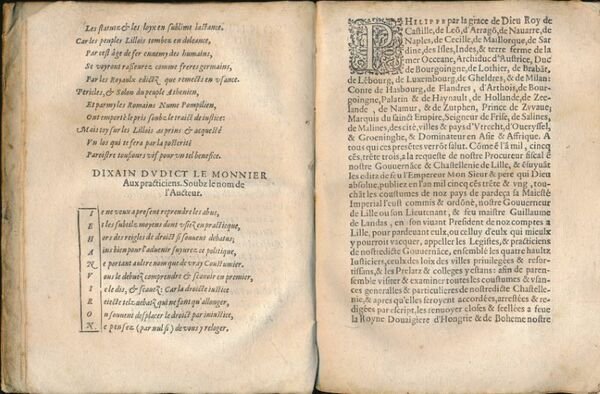 Les statuz & les loyx en sublime lactance.
Car les peuples Lillois tombez en doleance,
Par cest âge de fer ennemy des humains,
Se voyront rasseurez comme freres germains,
Par les Royaulx edictz que remects en vsance.
Pericles, & Solon du peuple Athenien,
Et parmy les Romains Nume Pompilien,
Ont emporté le pris soubz le traict de iustice:
Mais toy sur les Lillois as prins & acquesté
Vn los qui te fera par la posterité
Paroistre tousiours vif pour vn tel benefice.
DIXAIN DVDICT LE MONNIER
Aux practiciens. Soubz le nom de
l'Aucteur.
I e ne veux a present reprendre les abus,
E les subtilz moyens dont vsez en practicque,
H ors des reigles de droict si souuent debatus;
A ins bien pour l'aduenir suyure ce politique,
N e portant aultre nom que de vray Coustumier.
V ous le debuez comprendre & sçauoir en premier,
I e le dis, & sçauez: Car la droicte iustice
R eiecte telz debatz qui ne font qu'allonger,
O u souuent desplacer le droict par iniustice,
N e pensez (par nul si) de vous y reloger.
PHILIPPE par la grace de Dieu Roy de
Castille, de Leõ, d'Arragõ, de Nauarre, de
Naples, de Cecille, de Maillorque, de Sar
dine, des Isles, Indes, & terre ferme de la
mer Occeane, Archiduc d'Austrice, Duc
de Bourgoingne, de Lothier, de Brabãt,
de Lebourg, de Luxembourg, de Gheldres, & de Milan:
Conte de Hasbourg, de Flandres, d'Arthois, de Bour-
goingne, Palatin & de Haynault, de Hollande, de Zee-
lande, de Namur, & de Zutphen, Prince de Zvvaue;
Marquis du sainct Empire, Seigneur de Frise, de Salines,
de Malines, des cité, villes & pays d'Vtrecht, d'Oueryssel,
& Groeninghe, & Dominateur en Asie & Affrique. A
tous qui ces presẽtes verrõt salut. Cõme l'ã mil, cincq
cẽs, trête trois, a la requeste de nostre Procureur fiscal ẽ
nostre Gouuernãce & Chastellenie de Lille, & ẽsuyuãt
les edits de feu l'Empereur Mon Sieur & pere qui Dieu
absolue, publiez en l'an mil cincq cẽs trẽte & vng, tou-
chãt les coustumes de noz pays de pardeça sa Maiesté
Imperial l'eust commis & ordõné, nostre Gouuerneur
de Lille ou son Lieutenant, & feu maistre Guillaume
de Landas, en son viuant President de noz comptes a
Lille, pour pardeuant eulx, ou celluy d'eulx qui mieulx
y pourroit vacquer, appeller les Legistes, & practiciens
de nostredicte Gouuernãce, ensemble les quatre haultz
Iusticiers, eulx des loix des villes priuilegiées & resor-
tissans, & les Prelatz & colleges y estans: afin de paren-
semble visiter & examiner toutes les coustumes & vsan-
ces generalles & particulieres de nostredicte Chastelle-
nie, & apres qu'elles seroyent accordées, arrestées & re-
digées par escript, les renuoyer closes & seellées a feue
la Royne Douaigiere d'Hongrie & de Boheme nostre